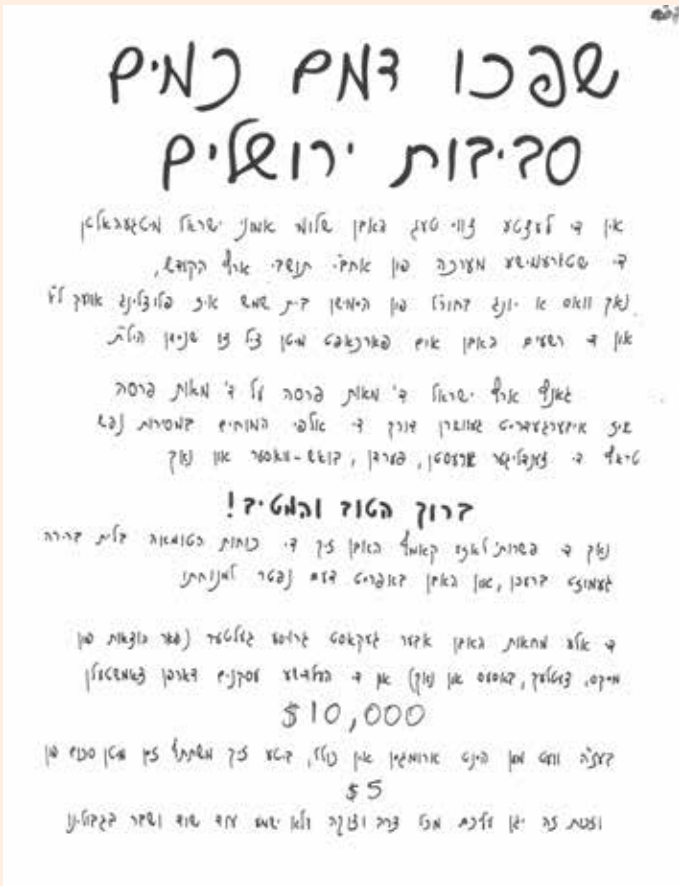 שפכו דמם כמים
סביבות ירושלים
אין די לעצטע צוויי טעג האבן שלומי אמוני ישראל מיטגעהאלטן
די שטורעמישע מערכה פון אחבי תושבי ארץ הקודש,
נאך וואס א יונג בחורל פון היימישן בית שמש איז פלוצלינג אוועק ל"ע
און די רשעים האבן אים פארכאפט מיטן ציל צו שניידן הילת
גאנץ ארץ ישראל ד' מאות פרסה על ד' מאות פרסה
איז איבערגעדרייט געווארן דורך די אלפי המוחים במסירות נפש
טראץ די צענדליגער ארעסטן, פערדן, בואש-וואסער און נאך
ברוך הטוב והמטיב!
נאך די פשרות'לאזע קאמף האבן זיך די כוחות הטומאה בלית ברירה
געמוזט ברעכן, און האבן באפרייט דעם נפטר למנוחתו
די אלע מחאות האבן אבער געקאסט גרויסע געלטער (פאר הוצאות פון
מייקס, צעטלעך, באסעס און נאך) און די הדרישע עסקנים דארפן צאמשטעלן
$10,000
בעזה וועט מען היינט ארומגיין אין כולל, ביטע זיך משתתף זיין מיטן סכום פון
$5
ועצת זה יגן עליכם מכל צרה וצוקה ולא ישמע עוד שוד ושבר בגבולינו